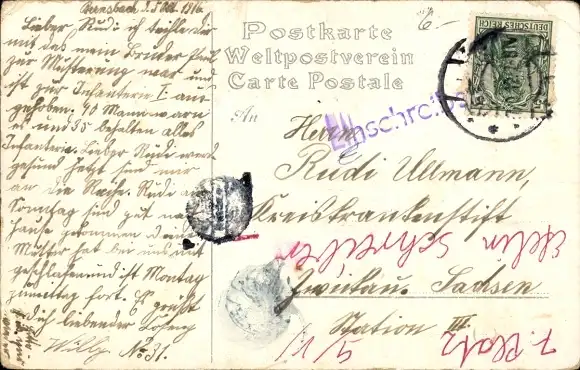 Bernsbach d. 5 1916
Lieber Rudi ich teile dir
mit das mein Bruder Paul
zur Musterung war und
ist zur Infanterie I. aus
gehoben. 40 Mann warn
es und 35 behalten alles
Infanterie. Lieber Rudi werd
gesund jetzt sind mir
an die Reihe. Rudi am
Sonntag sind gut nach
hause gekommen deine
Mutter hat bei uns mit
geschlafen und ist Montag
fort. Es grüßt
dich liebender
Willy No 31.
Postkarte
Weltpostverein
Carte Postale
An
DEUTSCHES REICH
Einschreiben
Herrn
Rudi Ullmann,
Kreiskrankenstift
Zwickau. Sachsen
Station III.
Schreiber
7. Platz